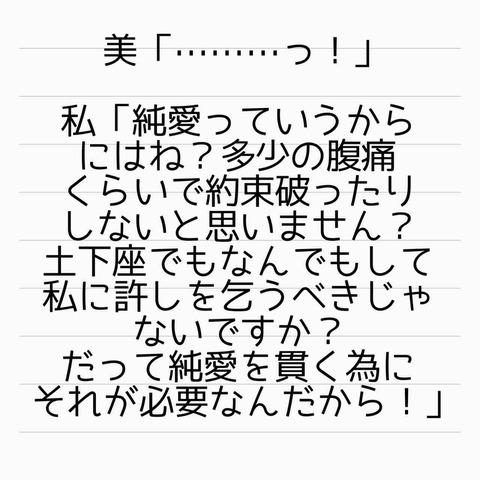 美「………っ！」
私「純愛っていうから
にはね？多少の腹痛
くらいで約束破ったり
しないと思いません？
土下座でもなんでもして
私に許しを乞うべきじゃ
ないですか？
だって純愛を貫く為に
それが必要なんだから！」